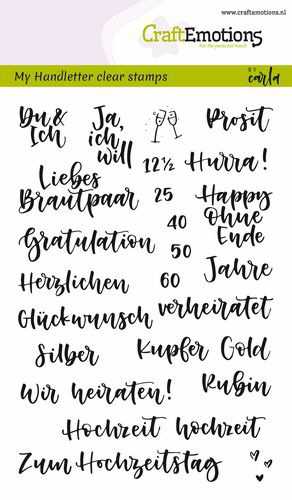 www.craftemotions.nl
CraftEmotions
For the passionate crafter!
My Handletter clear stamps
BY carla
Du & Ich
Ja, ich will
Prosit
12½ Hurra!
Liebes Brautpaar
25
Happy Ohne Ende
40
Gratulation
50
Jahre
Herzlichen
60
Glückwunsch
verheiratet
Silber
Kupfer
Gold
Wir heiraten!
Rubin
Hochzeit hochzeit
Zum Hochzeitstag